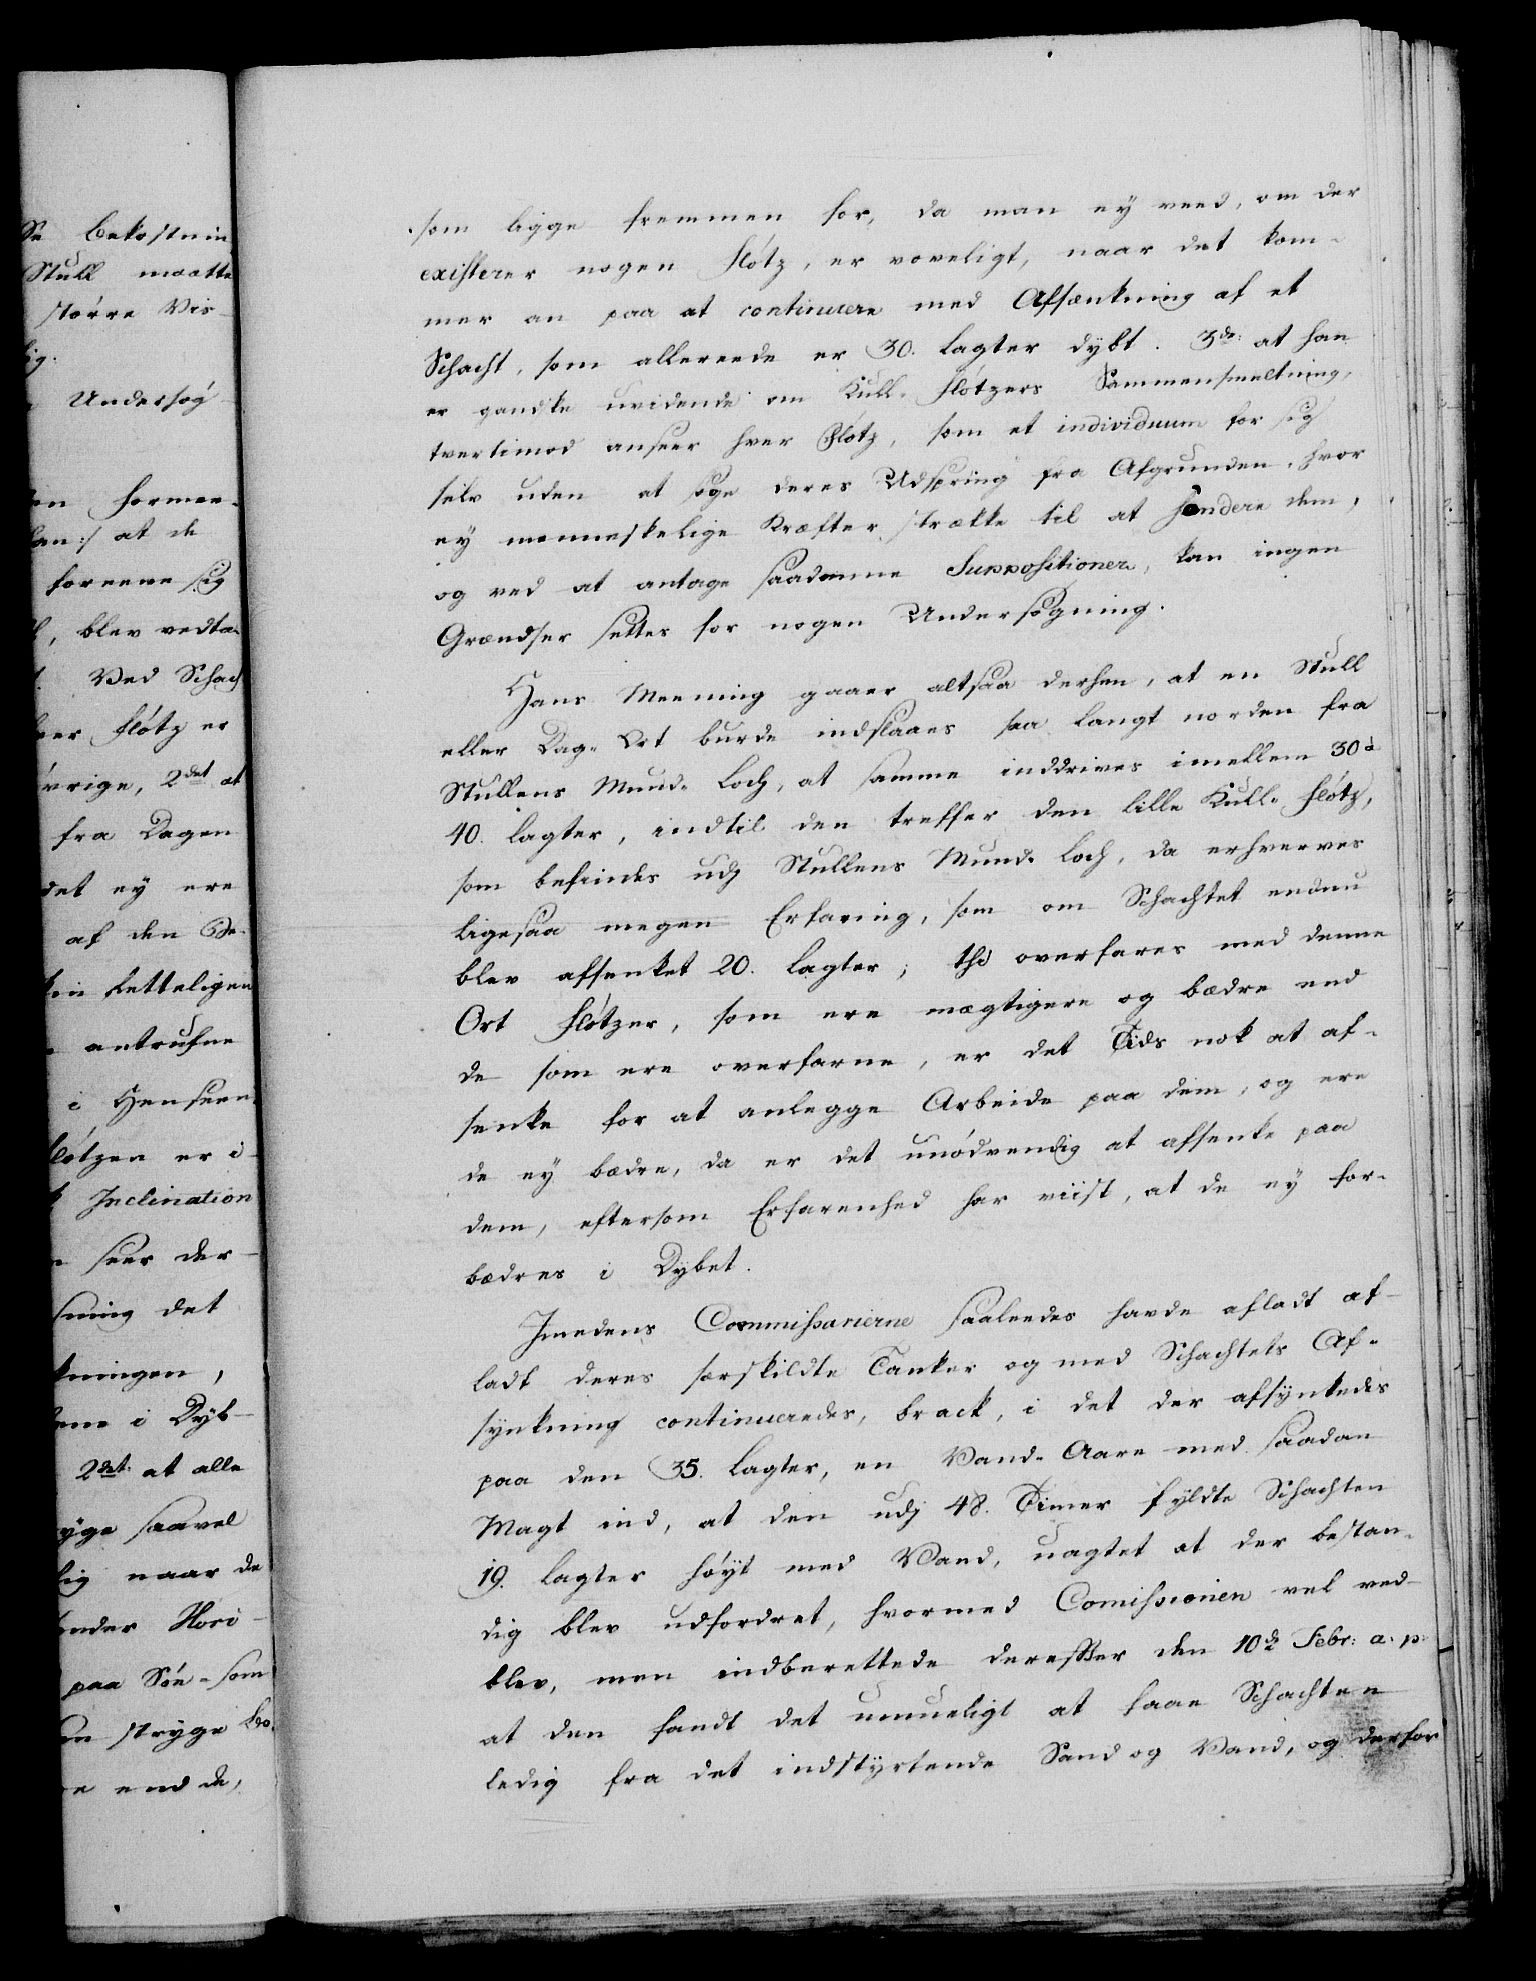 Se Bekostnin
Stull maatte
större Vis-
lig.
Undersøg
en formee-
Han:/ at de
foreene sig
blev vedta-
Ved Schach
ver Flötz er
övrige, 2det at
fra Dagen
det ey ere
af den Be-
kin Retteligen
antrufne
i Henseen-
flötzen er i-
Inclination
seer der-
sning det
kningen,
i Dyb-
2det at alle
ryge saavel
lig naar de
ender Hori-
paa Söe-som
stryge
end de,
som ligge fremmen for, da man ey veed, om der
existerer nogen Flötz, er voveligt, naar det kom-
mer an paa at continuere med Afsænkning af et
Schacht, som allereede er 30. Lagter dybt. 3de: at han
er gandske uvidende om Kull-Flötzers Sammensmeltning,
tvertimod anseer hver Flötz, som et individuum for sig
selv uden at søge deres Udspring fra Afgrunden, hvor
ey menneskelige Kræfter strække til at hendere dem,
og ved at antage saadanne Suppositioner, kan ingen
Grændser settes for nogen Undersøgning.
Hans Meening gaaer altsaa derhen, at en Stull
eller Dag-Ort burde indslaaes saa langt norden fra
Stullens Mund-Loch, at samme inddrives imellem 30 à
40. Lagter, indtil den treffer den lille Kull-Flötz,
som befindes udj Stullens Mund-Loch, da erhverves
ligesaa megen Erfaring, som om Schachtet endnu
blev afsenket 20. Lagter; thi overfares med denne
Ort Flötzer, som ere mægtigere og bædre end
de som ere overfarne, er det Tids nok at af-
senke for at anlegge Arbeide paa dem, og ere
de ey bædre, da er det unödvendig at afsenke paa
dem, eftersom Erfarenhed har viist, at de ey for-
bædres i Dybet.
Imedens Commissarierne saaleedes havde afladt af-
ladt deres særskildte Tanker og med Schachtets Af-
synkning continueredes, brack, i det der afsynkedes
paa den 35. Lagter, en Vand-Aare med saadan
Magt ind, at den udj 48. Timer fyldte Schachten
19. Lagter höyt med Vand, uagtet at der bestan-
dig blev udfordret, hvormed Comissionen vel ved-
blev, men indberettede derefter den 10de Febr: a: p:
at den fandt det umueligt at faae Schachten
ledig fra det indstyrtende Sand og Vand, og derfor